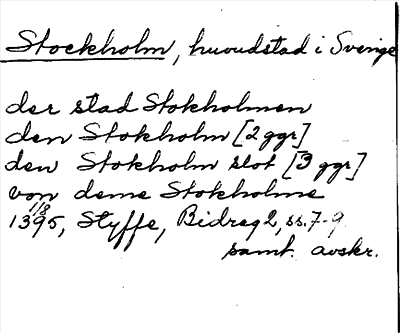 Stockholm, huvudstad i Sverige
der stad Stokholmen
den Stokholm [2 ggr]
den Stokholm slot [3 ggr]
von deme Stokholme
1/8
1395, Styffe, Bidrag 2, ss. 7-9
samt. avskr.